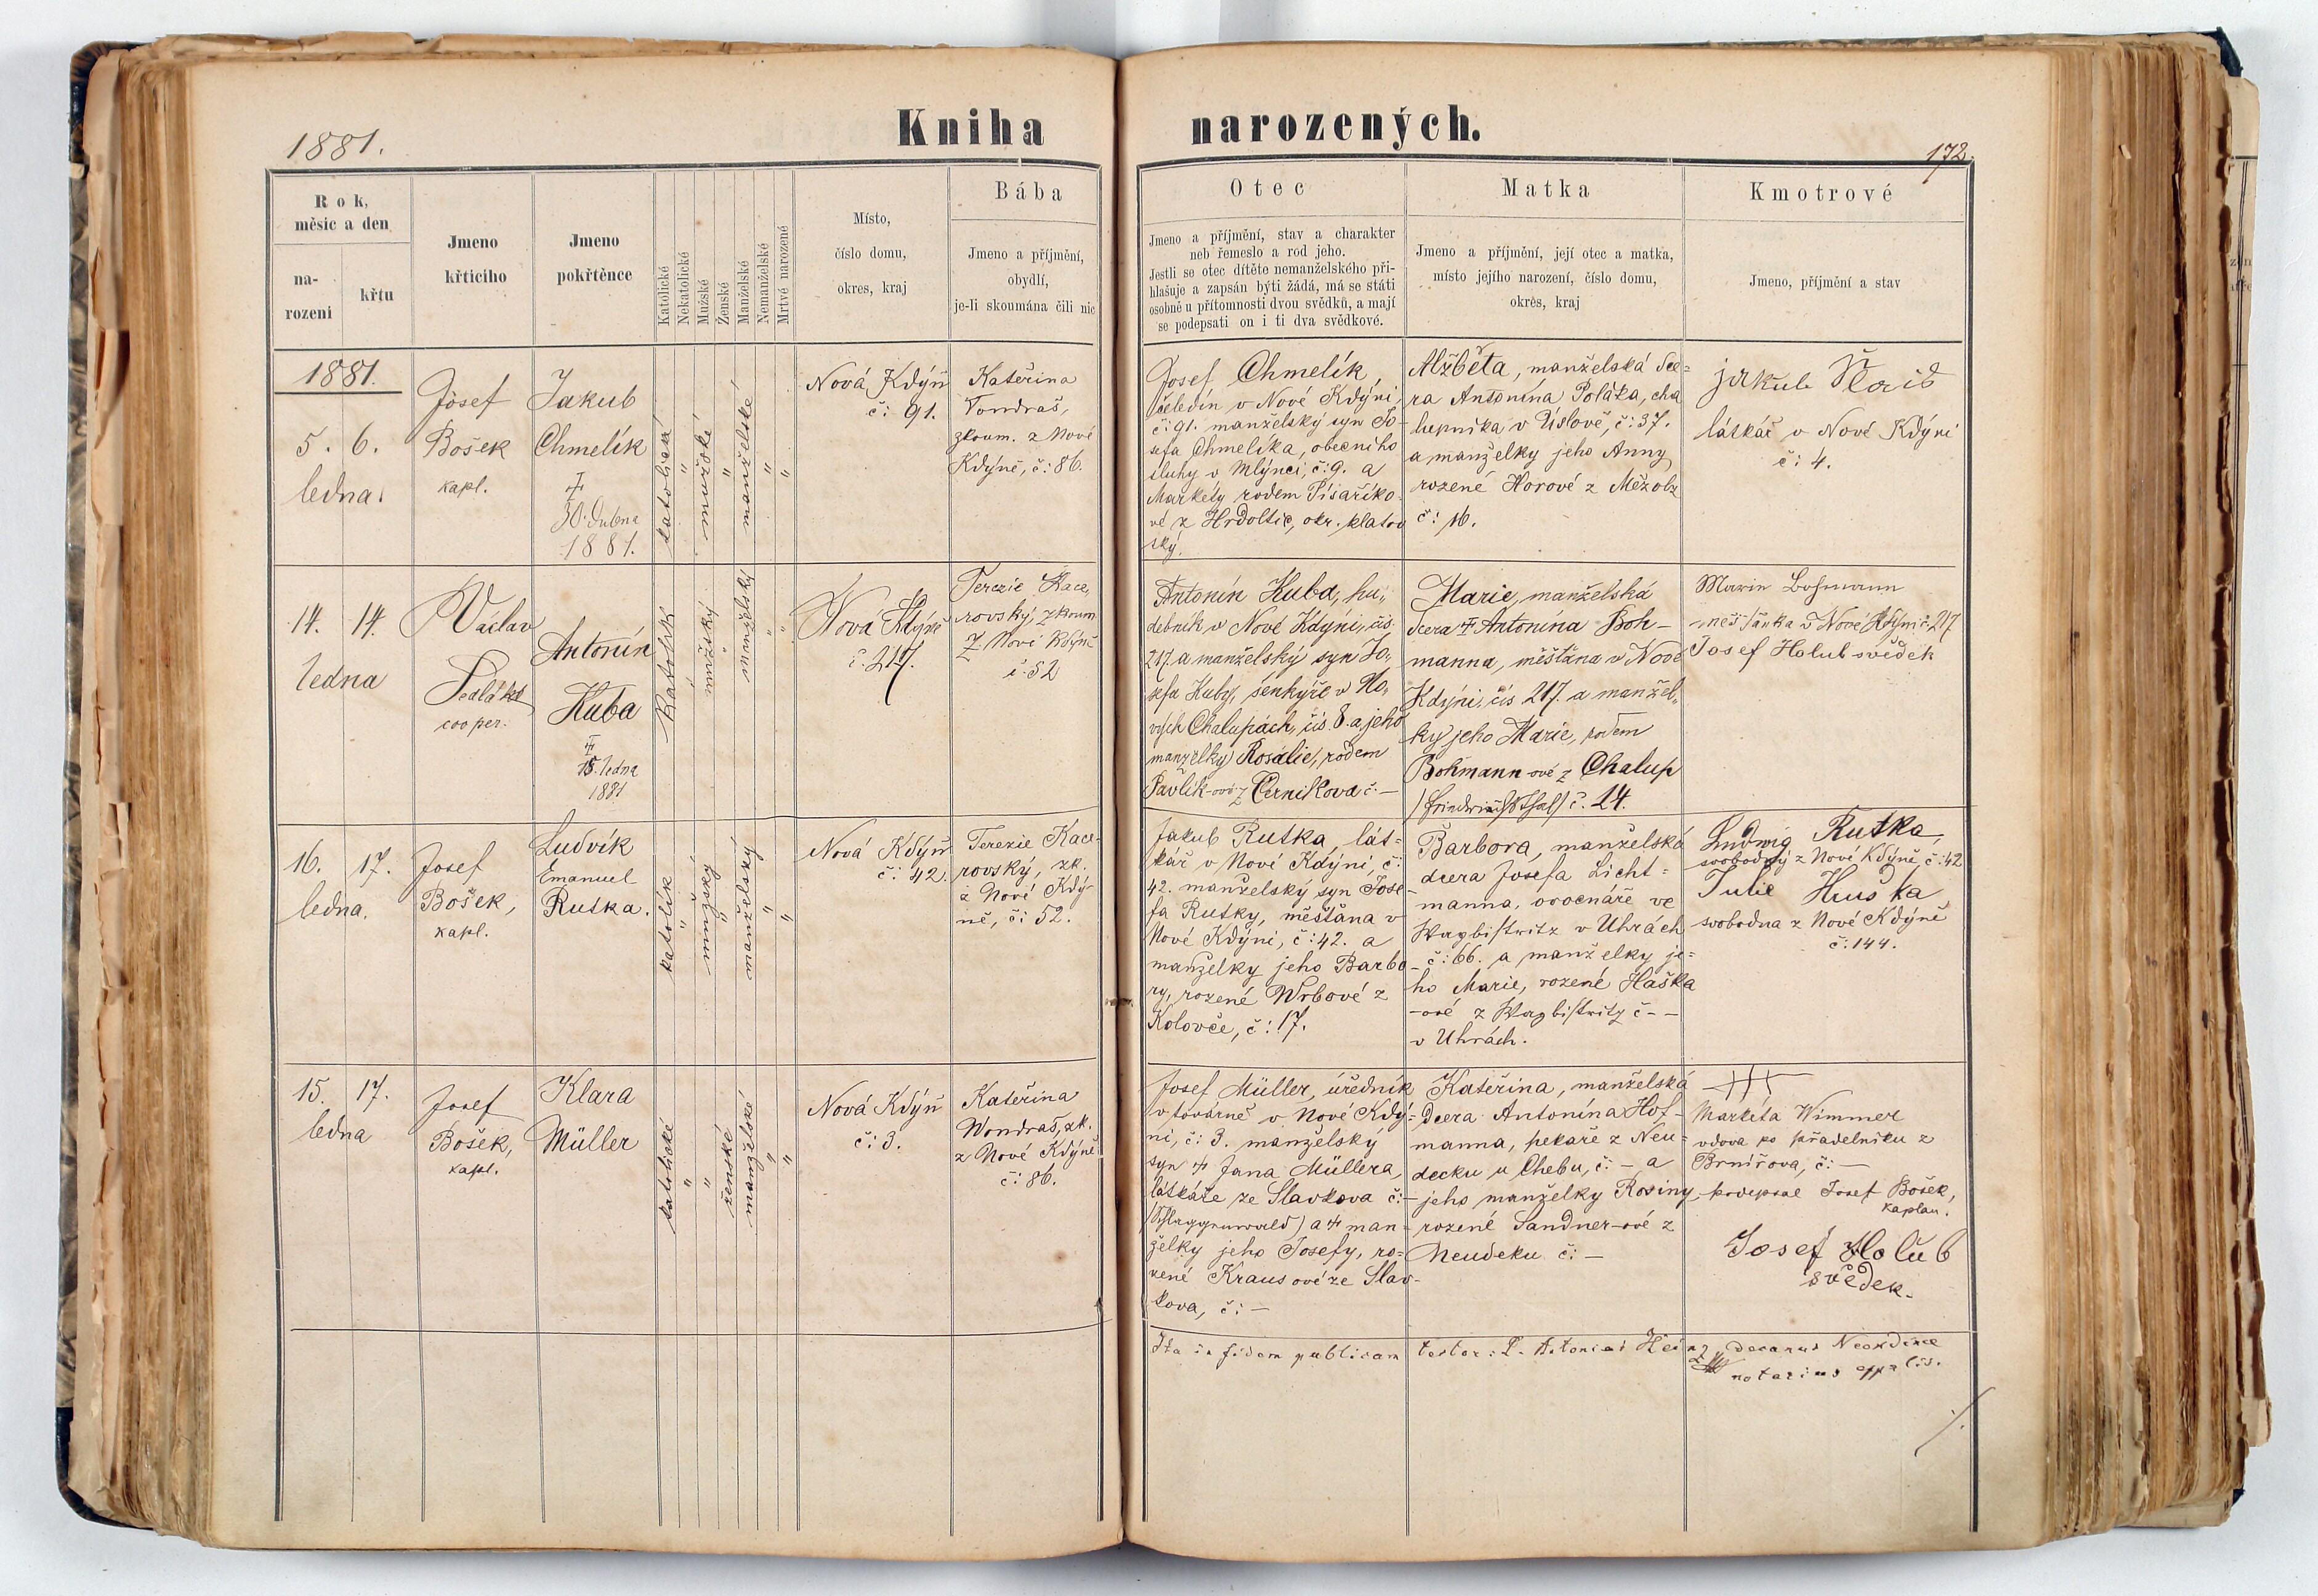 1881.
Kniha
narozených.
172.
Rok,
měsíc a den
na-
rození
křtu
Jmeno
křtícího
Jmeno
pokřtěnce
Katolické
Nekatolické
Mužské
Ženské
Manželské
Nemanželské
Mrtvé narozené
Místo,
číslo domu,
okres, kraj
Bába
Jmeno a příjmění,
obydlí,
je-li skoumána čili nic
Otec
Jmeno a příjmění, stav a charakter
neb řemeslo a rod jeho.
Jestli se otec dítěte nemanželského při-
hlašuje a zapsán býti žádá, má se státi
osobně u přítomnosti dvou svědků, a mají
se podepsati on i ti dva svědkové.
Matka
Jmeno a příjmění, její otec a matka,
místo jejího narození, číslo domu,
okrês, kraj
Kmotrové
Jmeno, příjmění a stav
1881.
5. 6.
ledna.
Josef
Bošek
kapl.
Jakub
Chmelík
†
30. dubna
1881.
katolické
"
mužské
"
manželské
"
"
Nová Kdýň
č: 91.
Kateřina
Vondraš,
zkoum. z Nové
Kdýně, č: 86.
Josef Chmelík,
čeledín v Nové Kdýni,
č: 91. manželský syn Jo-
sefa Chmelíka, obecního
sluhy v Mlýnci, č: 9. a
Markéty rodem Písaříko-
vé z Hrdoltic, okr. klatov
ský.
Alžběta, manželská dce=
ra Antonína Poláka, cha
lupníka v Úslově, č: 37.
a manželky jeho Anny
rozené Horové z Mězholz
č: 16.
jakub
látkář v Nové Kdýni
č: 4.
14. 14.
ledna
Václav
Sedlák
cooper.
Antonín
Kuba
†
15. ledna
1881
Katolík
"
mužský
"
manželský
"
"
Nová Kdýně
č. 217.
Terezie Kace,
rovský, zkoum
z Nové Kdyně
č. 52
Antonín Kuba, hu,,
debník v Nové Kdýni, čís
217. a manželský syn Jo,,
sefa Kuby, šenkýře v No,,
vých Chalupách, čís 8. a jeho
manželky Rosalie, rodem
Pavlík-ové z Černíkova č. —
Marie, manželská
dcera † Antonína Boh-
manna, měšťana v Nové
Kdýni, čís 217. a manžel,,
ky jeho Marie, rodem
Bohmann-ové z Chalup
/Friedrichsthal/ č. 14.
Marin Bohmann
měšťanka v Nové Kdýni č. 217
Josef Holub svědek
16. 17.
ledna.
Josef
Bošek,
kapl.
Ludvík
Emanuel
Rutka.
katolík
"
mužský
"
manželský
"
"
Nová Kdýň
č: 42.
Terezie Kace-
rovský, zk.
z Nové Kdý-
ně, č: 52.
Jakub Rutka, lát-
kář v Nové Kdýni, č:
42. manželský syn Jose
fa Rutky, měšťana v
Nové Kdýni, č: 42. a
manželky jeho Barbo
ry, rozené Wrbové z
Kolovče, č: 17.
Barbora, manželská
dcera Josefa Licht=
manna, ovocnáře ve
Wagbistritz v Uhrách
č: 66. a manželky je=
ho Marie, rozené Haška
-ové z Wagbistritz č - —
v Uhrách.
Ludwig Rutka,
svobodný z Nové Kdýně, č: 42
Julie Huska
svobodna z Nové Kdýně
č: 144.
15. 17.
ledna
Josef
Bošek,
kapl.
Klara
Müller
katolické
"
"
ženské
manželské
"
"
Nová Kdýň
č: 3.
Kateřina
Wondraš, zk.
z Nové Kdýně
č: 86.
Josef Müller, úředník
v továrně v Nové Kdý=
ni, č: 3. manželský
syn † Jana Müllera,
látkáře ze Slavkova č: —
/Schlaggenwald/ a † man=
želky jeho Josefy, ro=
zené Kraus ové ze Slav-
kova, č: —
Kateřina, manželská
dcera Antonína Hof-
manna, pekaře z Neu=
decku u Chebu, č: — a
jeho manželky Rosiny
rozené Sandner-ové z
Neudeku č: —
+++
Markéta Wimmer
vdova po přadelníku z
Brnířova, č: —
podepsal Josef Bošek,
kaplan.
Josef Holub
svědek.
Ita in fidem publicam testor: P. Antonius Heinz, decanus Neokdinae
notarius eppalis.